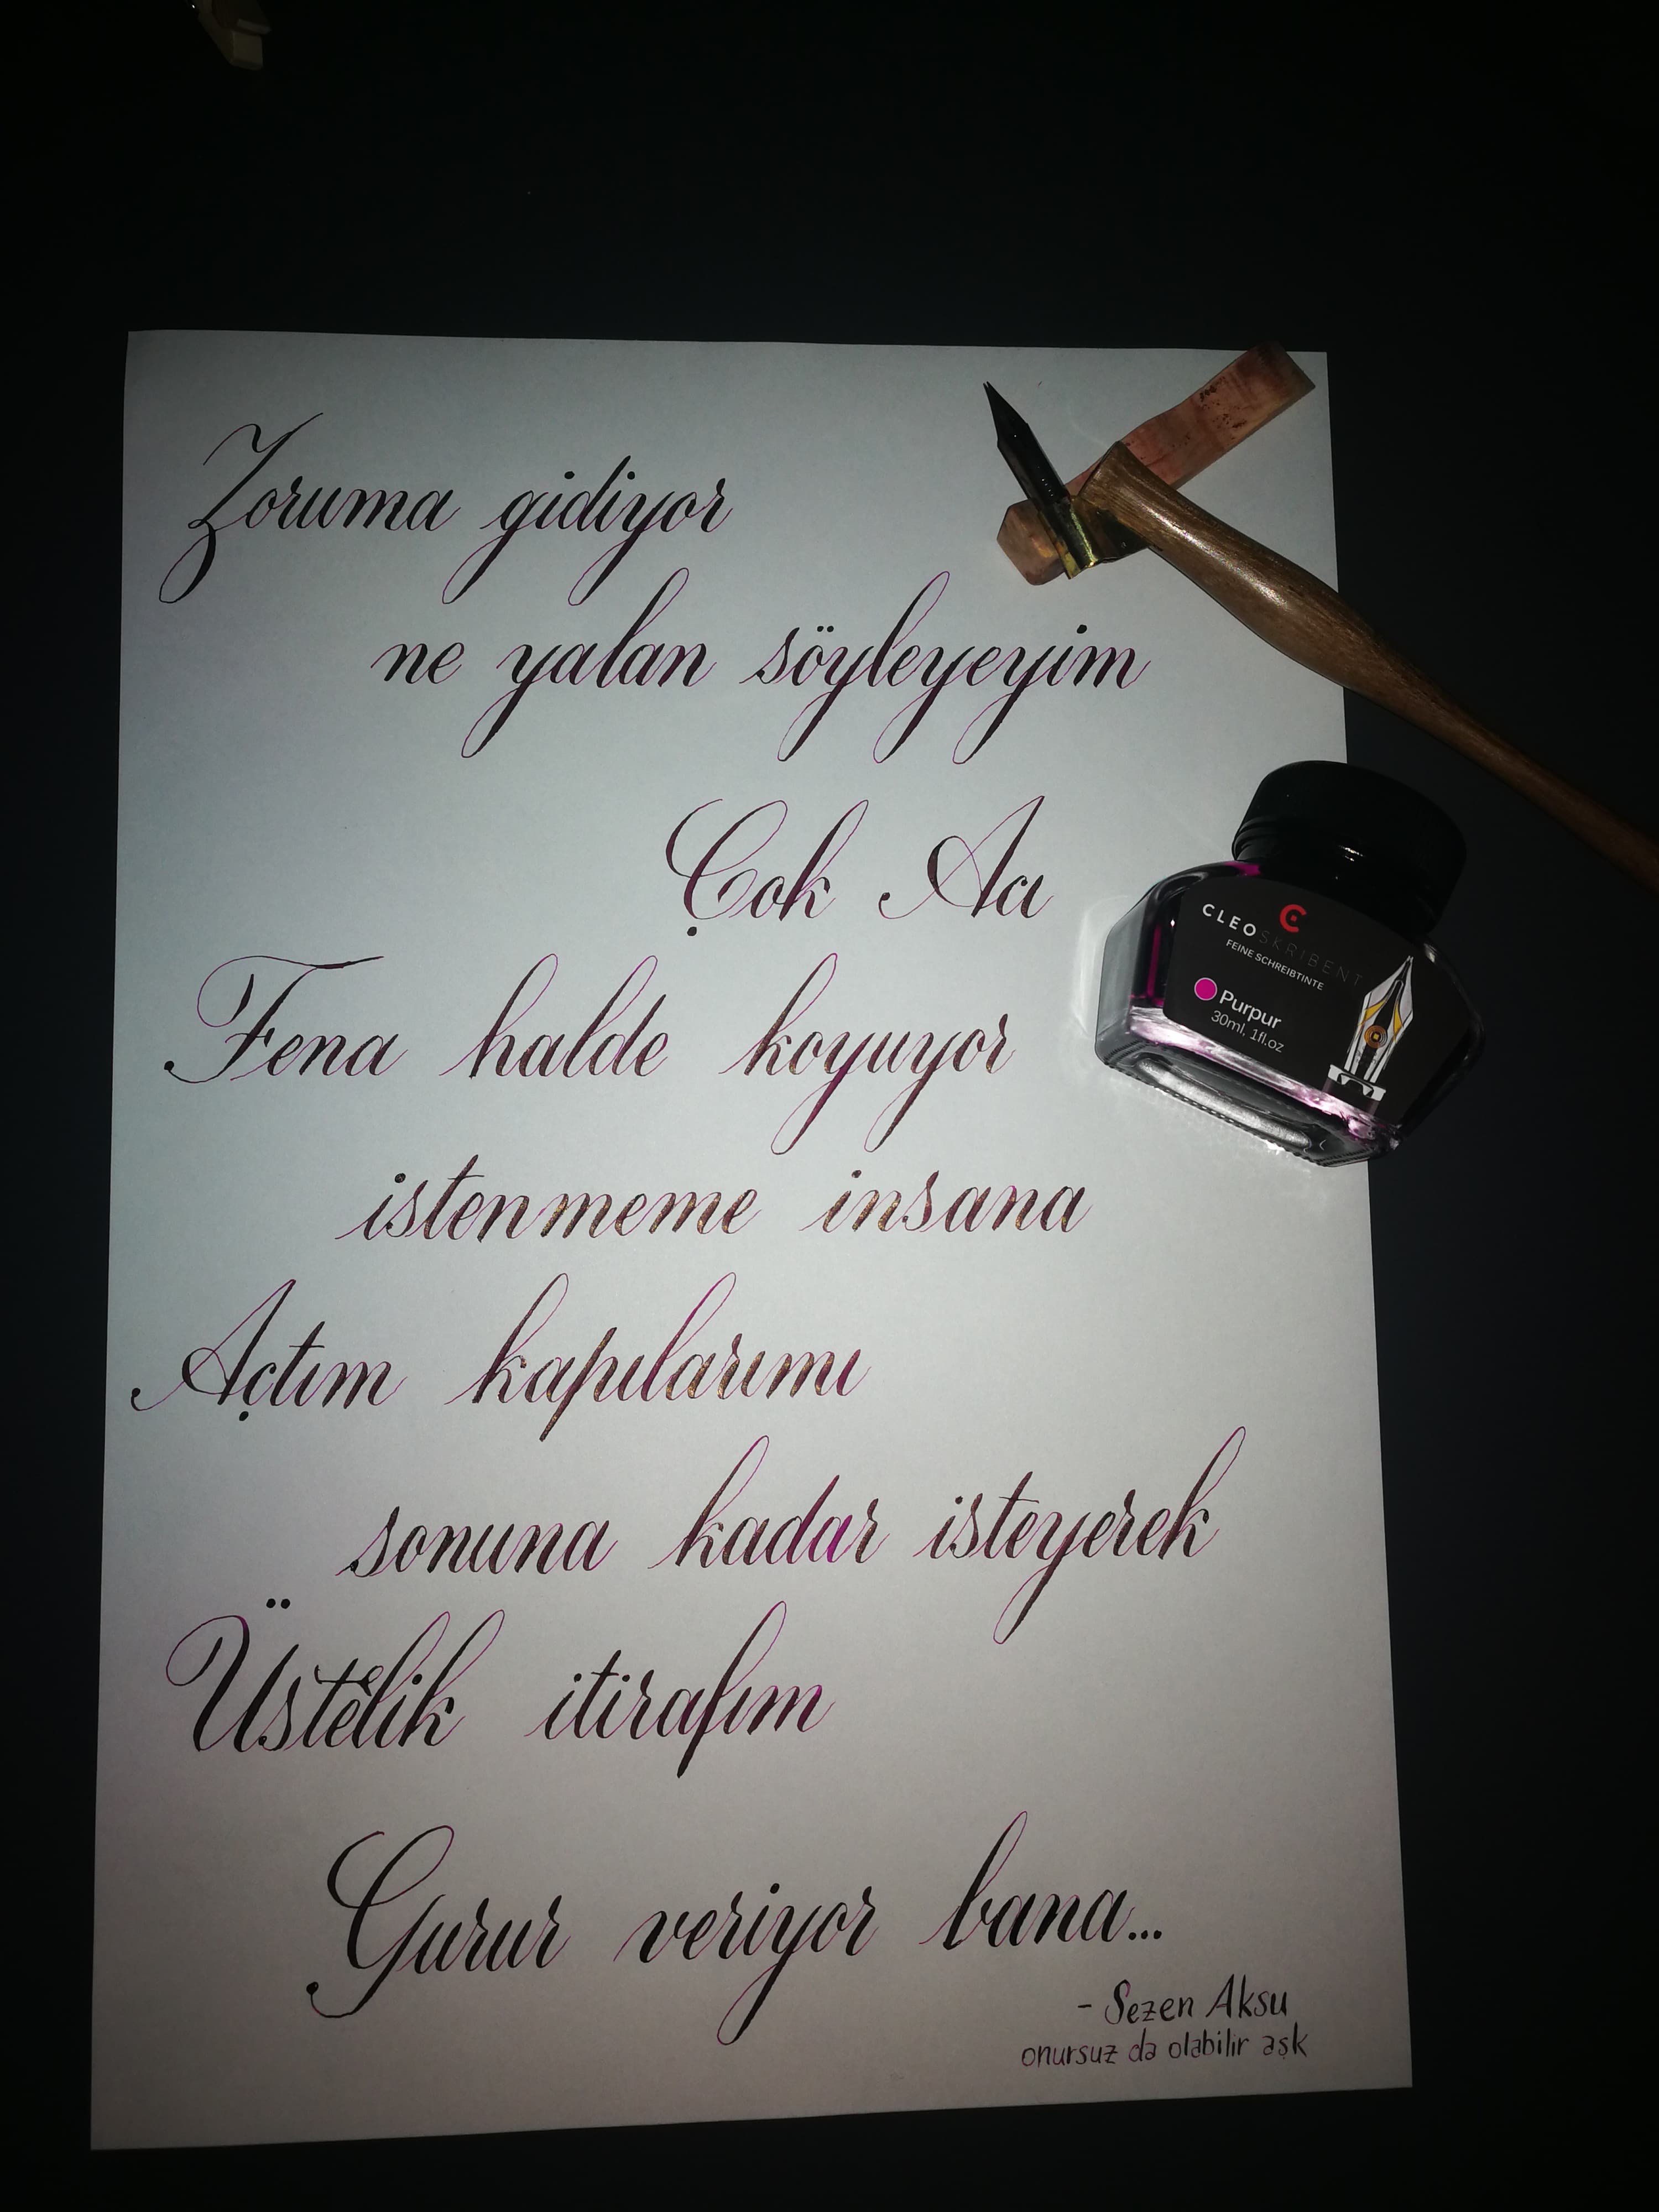 Zoruma gidiyor
ne yalan söyleyeyim
Çok Acı
Fena halde koyuyor
istenmeme insana
Açtım kapılarımı
sonuna kadar isteyerek
Üstelik itirafım
Gurur veriyor bana...
- Sezen Aksu
onursuz da olabilir aşk
CLEOSKRIBENT
FEINE SCHREIBTINTE
Purpur
30ml, 1fl.oz